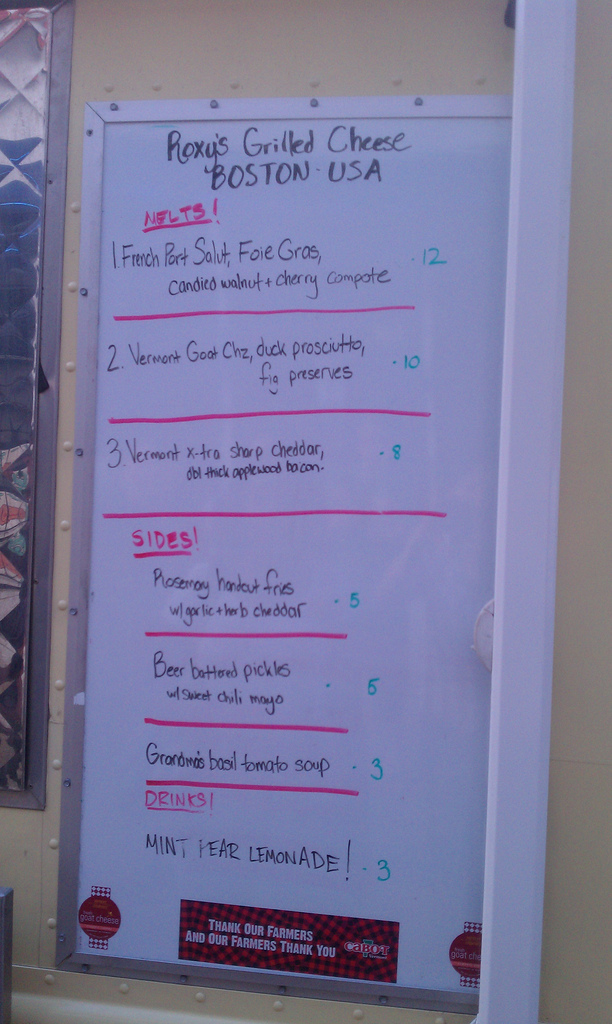 Roxy's Grilled Cheese
BOSTON · USA
MELTS!
1. French Port Salut, Foie Gras, · 12
candied walnut + cherry compote
2. Vermont Goat Chz, duck prosciutto, · 10
fig preserves
3. Vermont x-tra sharp cheddar, · 8
dbl thick applewood bacon.
SIDES!
Rosemary handcut fries · 5
w/ garlic + herb cheddar
Beer battered pickles · 5
w/ sweet chili mayo
Grandma's basil tomato soup · 3
DRINKS!
MINT PEAR LEMONADE! · 3
goat cheese
THANK OUR FARMERS
AND OUR FARMERS THANK YOU
CABOT
goat che